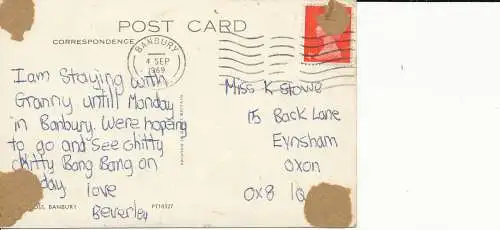 POST CARD
CORRESPONDENCE
BANBURY
4 SEP
1969
I am staying with
Granny untill Monday
in Banbury. Were hopeing
to go and see chitty
chitty Bang Bang on
day. love
Beverley
Miss K Stowe
15 Back Lane
Eynsham
Oxon
OX8 1Q
BANBURY